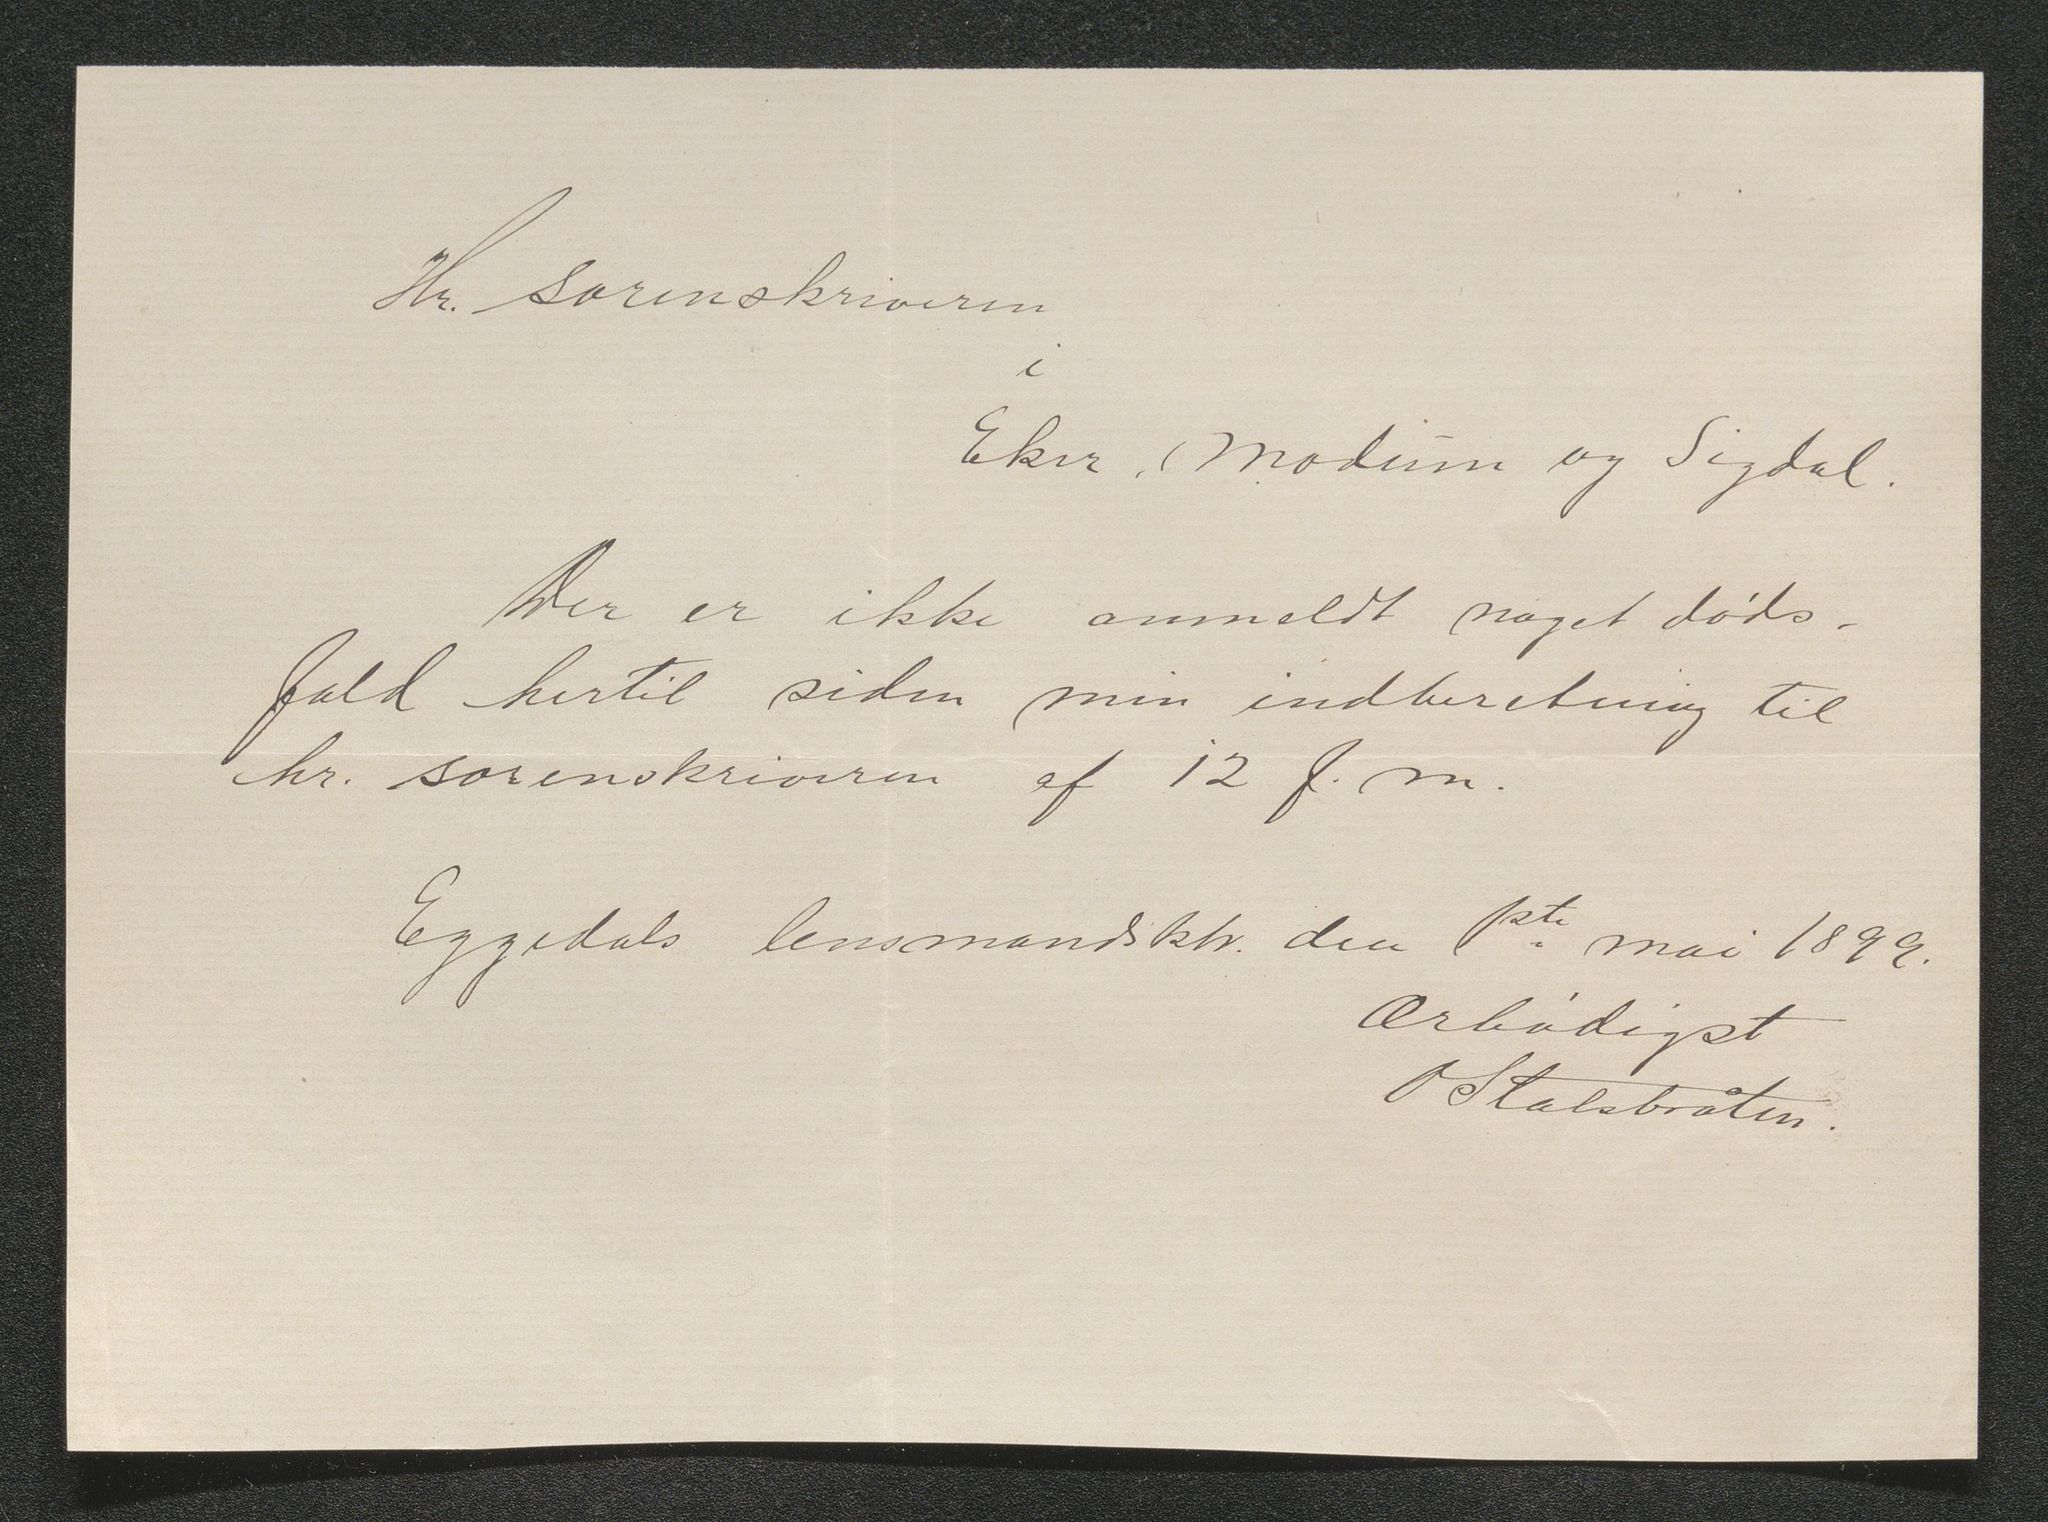 Hr. sorenskriveren
i
Eker, Modum og Sigdal.
Der er ikke anmeldt noget døds-
fald hertil siden min indberetning til
hr. sorenskriveren af 12 f. m.
Eggedals lensmandsktr. den 1ste mai 1899.
Ærbødigst
O Stalsbråten.